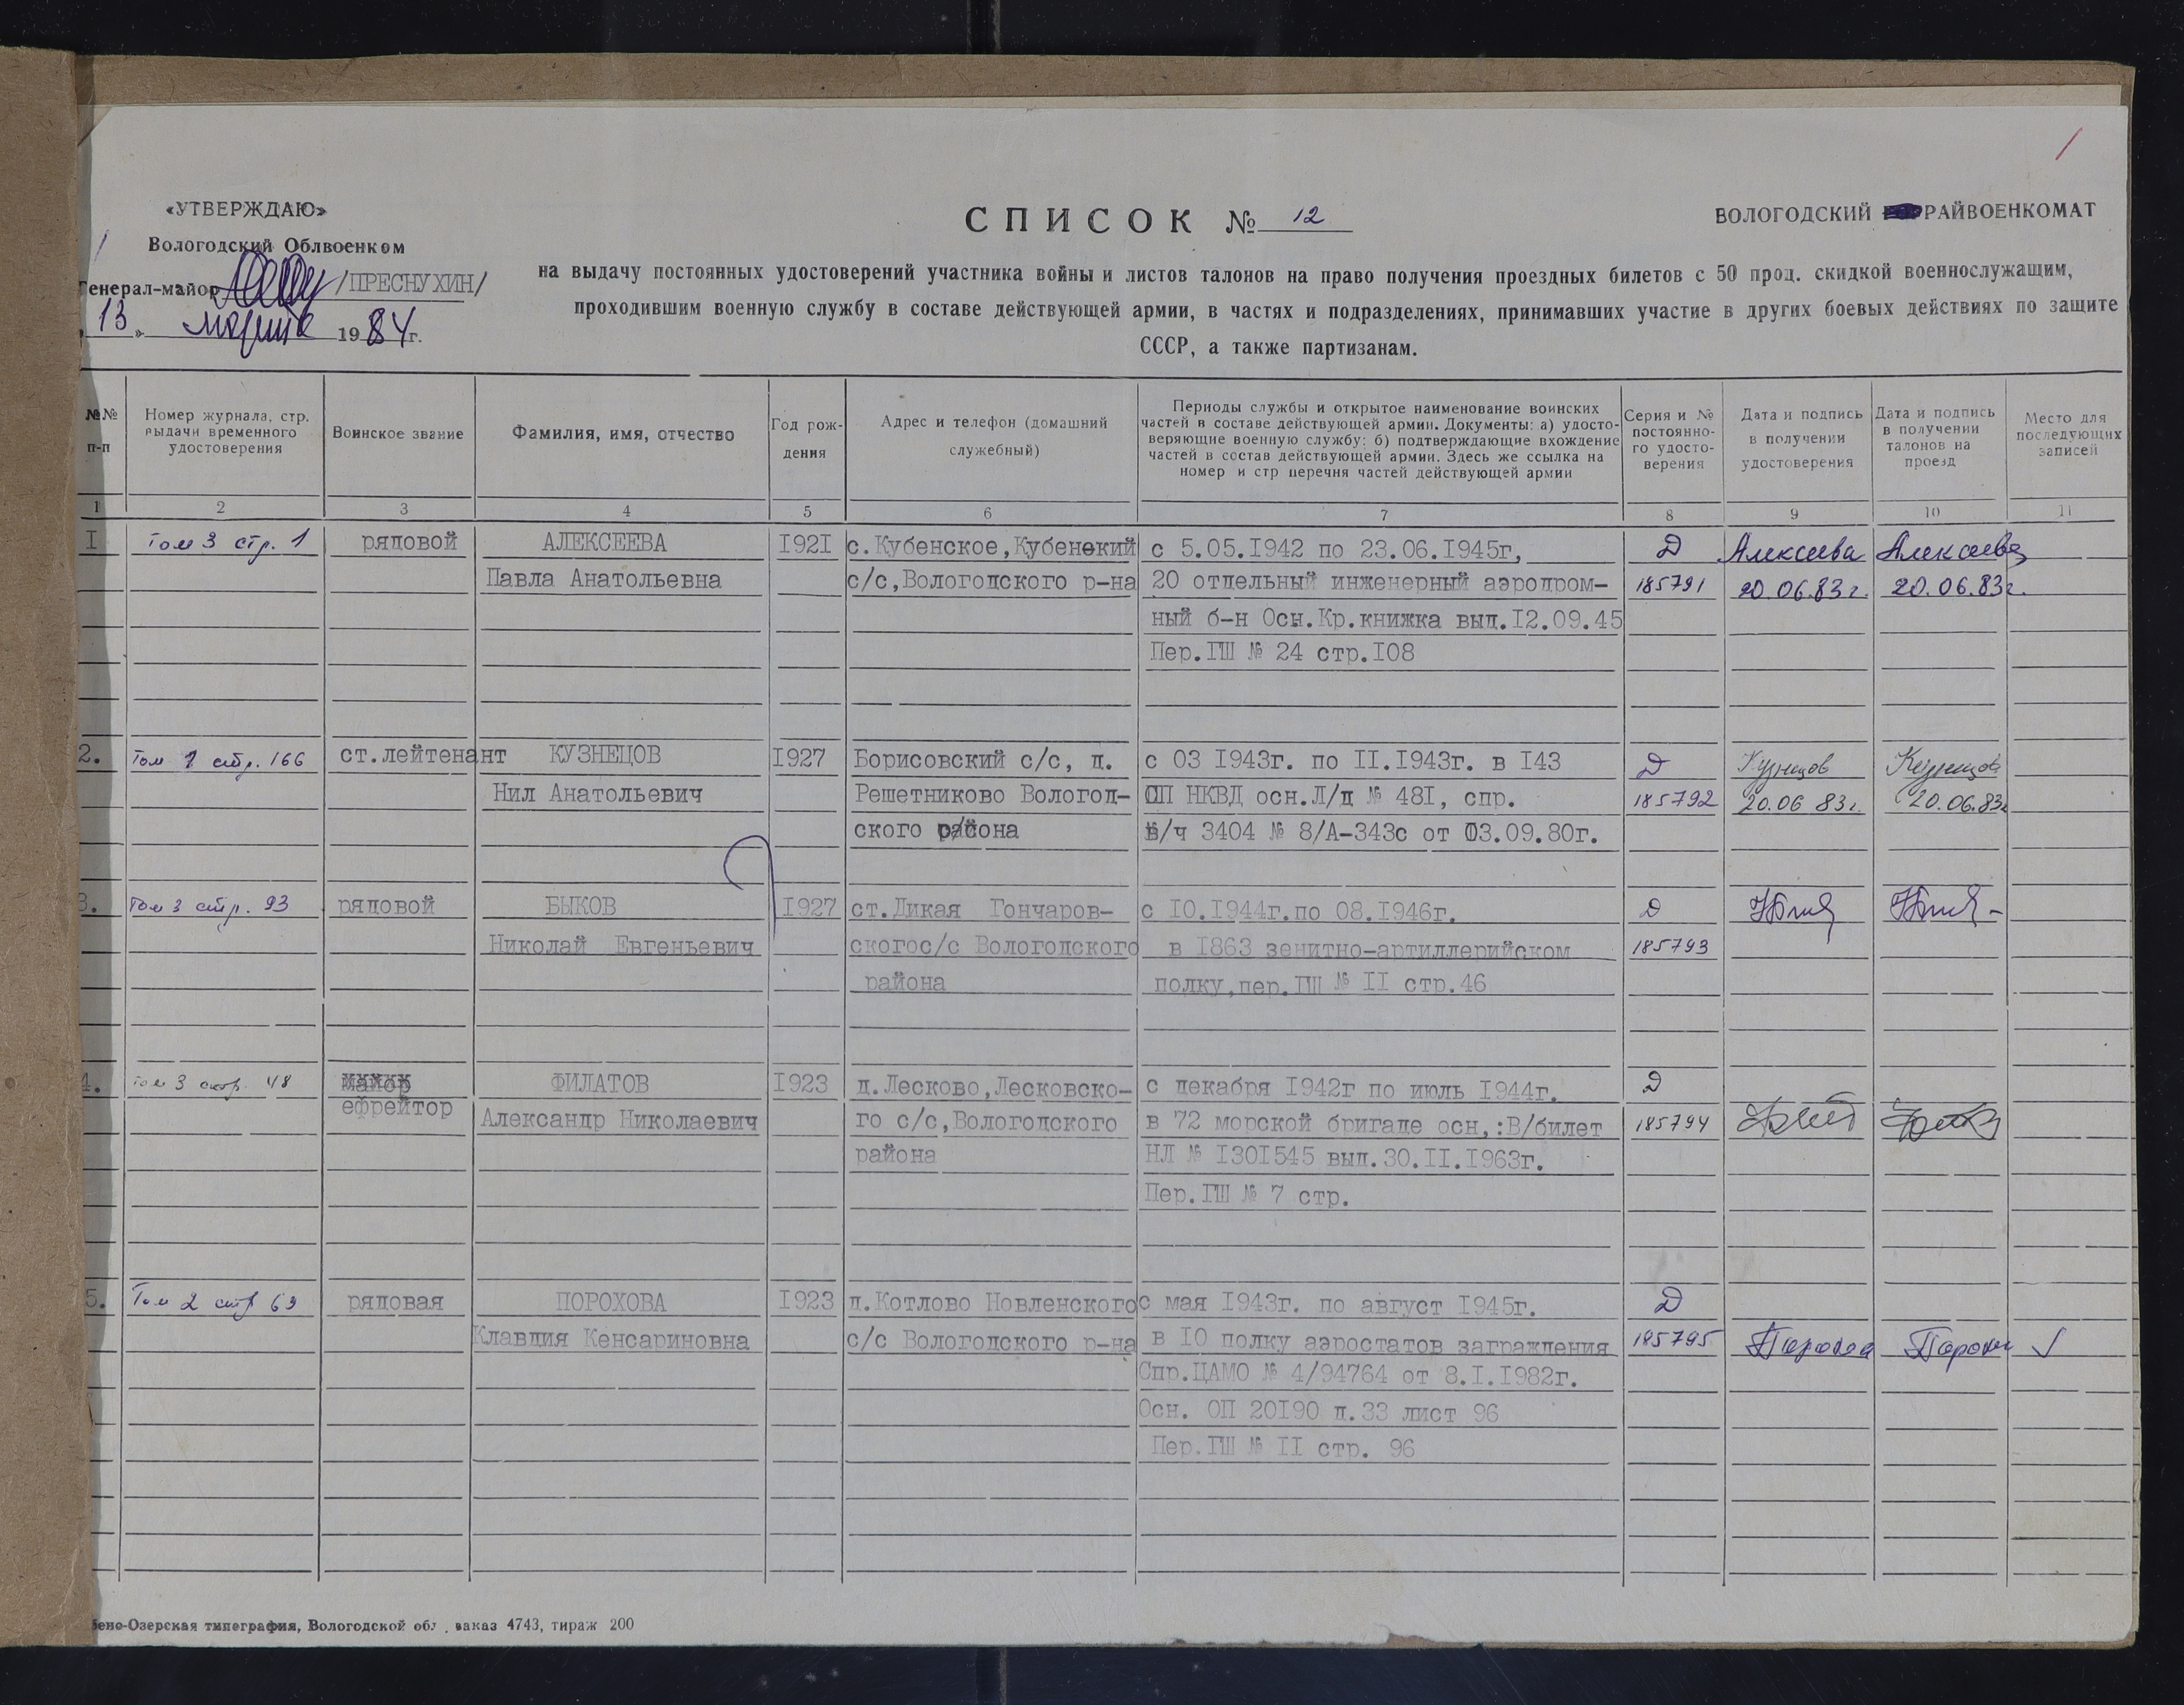 1
«УТВЕРЖДАЮ»
Вологодский Облвоенком
Генерал-майор /ПРЕСНУХИН/
«13» марта 1984г.
СПИСОК № 12
ВОЛОГОДСКИЙ РАЙВОЕНКОМАТ
на выдачу постоянных удостоверений участника войны и листов талонов на право получения проездных билетов с 50 проц. скидкой военнослужащим,
проходившим военную службу в составе действующей армии, в частях и подразделениях, принимавших участие в других боевых действиях по защите
СССР, а также партизанам.
№№ п-п
Номер журнала, стр. выдачи временного удостоверения
Воинское звание
Фамилия, имя, отчество
Год рож-
дения
Адрес и телефон (домашний
служебный)
Периоды службы и открытое наименование воинских
частей в составе действующей армии. Документы: а) удосто-
веряющие военную службу; б) подтверждающие вхождение
частей в состав действующей армии. Здесь же ссылка на
номер и стр перечня частей действующей армии
Серия и №
постоянно-
го удосто-
верения
Дата и подпись
в получении
удостоверения
Дата и подпись
в получении
талонов на
проезд
Место для
последующих
записей
1 2 3 4 5 6 7 8 9 10 11
I Том 3 стр. 1 рядовой АЛЕКСЕЕВА I92I с.Кубенское,Кубенский с 5.05.I942 по 23.06.I945г, Д Алексеева Алексеева
Павла Анатольевна с/с,Вологодского р-на 20 отдельный инженерный аэродром- 185791 20.06.83г. 20.06.83г.
ный б-н Осн.Кр.книжка выд.I2.09.45
Пер.ГШ № 24 стр.I08
2. Том 1 стр. 166 ст.лейтенант КУЗНЕЦОВ I927 Борисовский с/с, д. с 03 I943г. по II.I943г. в I43 Д Кузнецов Кузнецов
Нил Анатольевич Решетниково Вологод- СП НКВД осн.Л/д № 48I, спр. 185792 20.06 83г. 20.06.83г
ского района в/ч 3404 № 8/А-343с от 03.09.80г.
3. Том 3 стр. 93 рядовой БЫКОВ I927 ст.Дикая Гончаров- с I0.I944г.по 08.I946г. Д
Николай Евгеньевич скогос/с Вологодского в I863 зенитно-артиллерийском 185793
района полку,пер.ГШ № II стр.46
4. Том 3 стр. 48 майор ФИЛАТОВ I923 д.Лесково,Лесковско- с декабря I942г по июль I944г. Д
ефрейтор Александр Николаевич го с/с,Вологодского в 72 морской бригаде осн,:В/билет 185794
района НЛ № I30I545 выд.30.II.I963г.
Пер.ГШ № 7 стр.
5. Том 2 стр 69 рядовая ПОРОХОВА I923 д.Котлово Новленского с мая I943г. по август I945г. Д
Клавдия Кенсариновна с/с Вологодского р-на в I0 полку аэростатов заграждения 185795
Спр.ЦАМО № 4/94764 от 8.I.I982г.
Осн. ОП 20I90 д.33 лист 96
Пер.ГШ № II стр. 96
бено-Озерская типография, Вологодской обл., заказ 4743, тираж 200